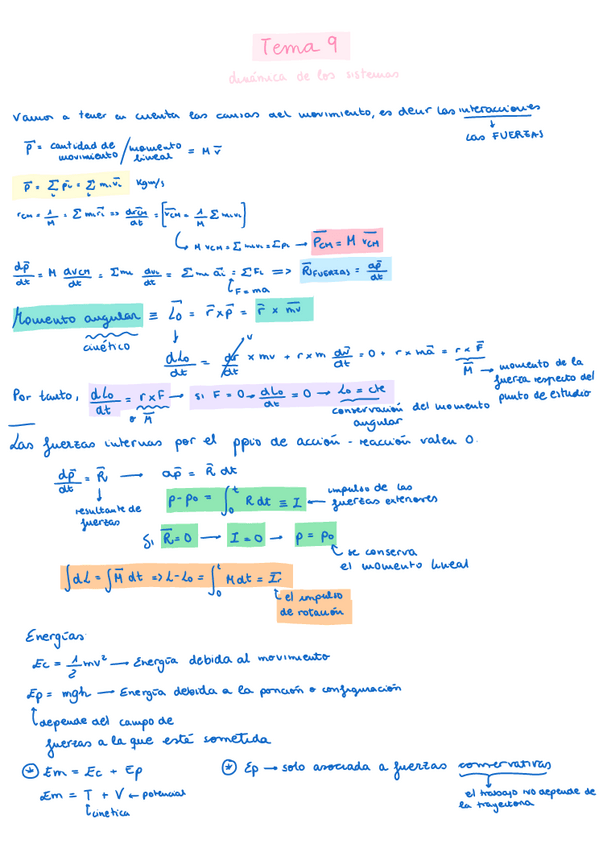 Tema 9
dinámica de los sistemas
Vamos a tener en cuenta las causas del movimiento, es decir las interacciones
↓
Las FUERZAS
p⃗ = cantidad de movimiento / momento lineal = M v⃗
p⃗ = Σ p⃗i = Σ mi v⃗i Kgm/s
rCM = 1/M = Σ mi r⃗i => drCM/dt = [v⃗CM = 1/M Σ mivi]
↳ M vCM = Σ mivi = Σpi → P⃗CM = M v⃗CM
dp⃗/dt = M dvCM/dt = Σmi dvi/dt = Σ mi a⃗i = Σ Fi => R⃗FUERZAS = dp⃗/dt
↳ F=ma
Momento angular ≡ L⃗o = r⃗ x p⃗ = r⃗ x mv⃗
cinético
dLo/dt = dr/dt x mv + r x m dv⃗/dt = 0 + r x ma⃗ = r x F⃗
v
M⃗ → momento de la fuerza respecto del punto de estudio
Por tanto, dLo/dt = r x F → si F = 0 → dLo/dt = 0 → Lo = cte
o M⃗
conservación del momento angular
Las fuerzas internas por el ppio de acción - reacción valen 0.
dp⃗/dt = R⃗ → dp⃗ = R⃗ dt
↓
resultante de fuerzas
p-po = ∫₀ᵗ R dt ≡ I ← impulso de las fuerzas exteriores
Si R⃗=0 → I=0 → p = po
↳ se conserva el momento lineal
∫dL = ∫M⃗ dt => L-Lo = ∫₀ᵗ M dt = I
↳ el impulso de rotación
Energías:
Ec = 1/2 mv² → Energía debida al movimiento
Ep = mgh → Energía debida a la posición o configuración
↳ depende del campo de
fuerzas a la que esté sometida
* Em = Ec + Ep
* Ep → solo asociada a fuerzas conservativas
↓
el trabajo no depende de la trayectoria
Em = T + V ← potencial
↳ cinética